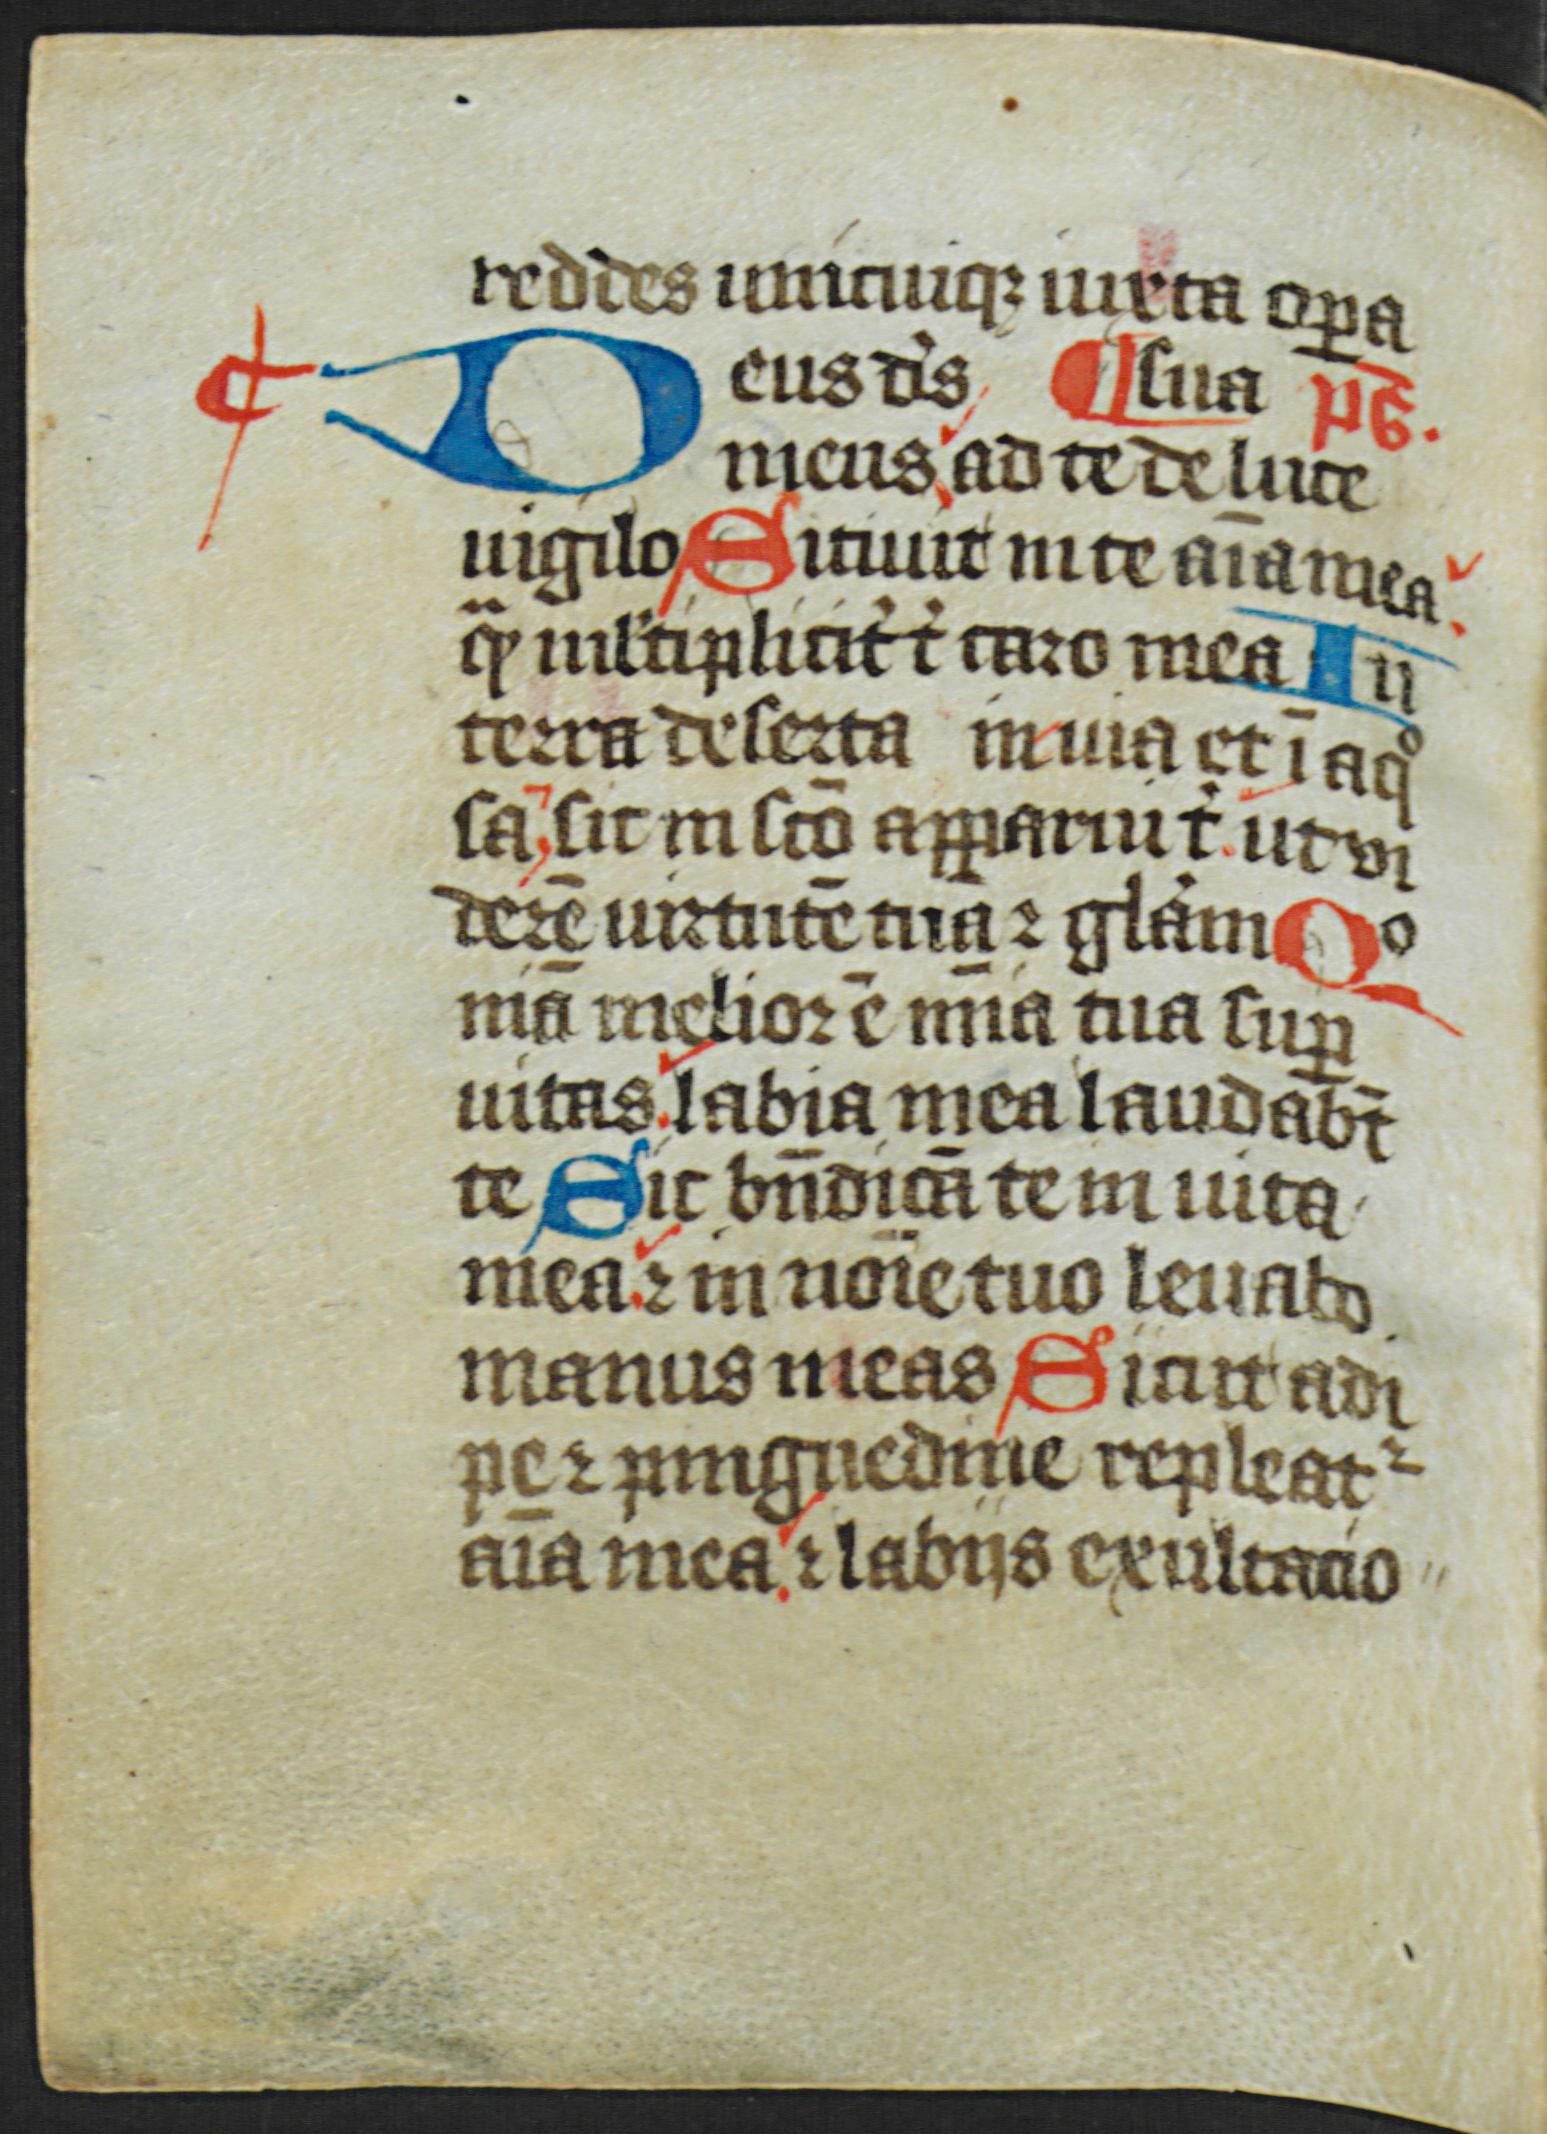 reddes unicuiqꝫ iuxta oꝑa
Deus ds̾ ¶ sua pš.
meus ad te de luce
uigilo Sitiuit in te aīa mea
qͣ̈ ml̾tiplicit̾ t̾ caro mea In
terra deserta in uia et ī aqͦ
sa, sic in sc̄o apparui t̾. ut vi
derē uirtutē tuā ⁊ gl̾am Qo
niā melior ē mīa tua suꝑ
uitas labia mea laudab̄t
te Sic bn̄dicā te in uita
mea ⁊ in noīe tuo leuabo
manus meas Sicut adi
pe ⁊ pinguedine repleat᷑
aīa mea ⁊ labijs exultacio